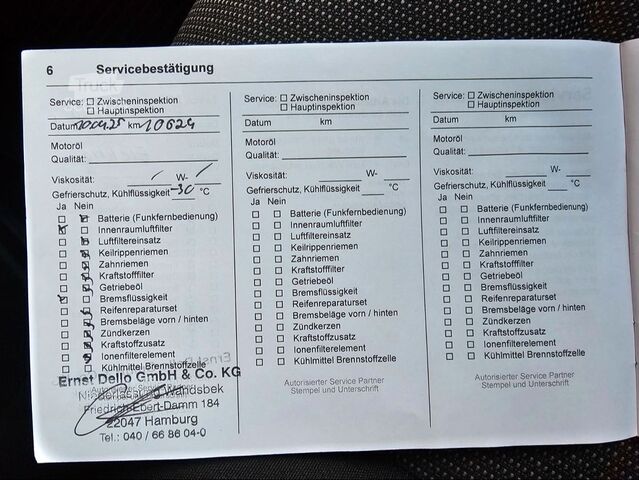 6 Servicebestätigung
Truck
Service: Zwischeninspektion
Hauptinspektion
Datum km 10624
Motoröl
Qualität:
Viskosität: / W- /
Gefrierschutz, Kühlflüssigkeit -30 °C
Ja Nein
Batterie (Funkfernbedienung)
Innenraumluftfilter
Luftfiltereinsatz
Keilrippenriemen
Zahnriemen
Kraftstofffilter
Getriebeöl
Bremsflüssigkeit
Reifenreparaturset
Bremsbeläge vorn / hinten
Zündkerzen
Kraftstoffzusatz
Ionenfilterelement
Kühlmittel Brennstoffzelle
Ernst Dello GmbH & Co. KG
Niederlassung Wandsbek
Friedrich-Ebert-Damm 184
22047 Hamburg
Tel.: 040 / 66 86 04-0
Service: Zwischeninspektion
Hauptinspektion
Datum km
Motoröl
Qualität:
Viskosität: W-
Gefrierschutz, Kühlflüssigkeit °C
Ja Nein
Batterie (Funkfernbedienung)
Innenraumluftfilter
Luftfiltereinsatz
Keilrippenriemen
Zahnriemen
Kraftstofffilter
Getriebeöl
Bremsflüssigkeit
Reifenreparaturset
Bremsbeläge vorn / hinten
Zündkerzen
Kraftstoffzusatz
Ionenfilterelement
Kühlmittel Brennstoffzelle
Autorisierter Service Partner
Stempel und Unterschrift
Service: Zwischeninspektion
Hauptinspektion
Datum km
Motoröl
Qualität:
Viskosität: W-
Gefrierschutz, Kühlflüssigkeit °C
Ja Nein
Batterie (Funkfernbedienung)
Innenraumluftfilter
Luftfiltereinsatz
Keilrippenriemen
Zahnriemen
Kraftstofffilter
Getriebeöl
Bremsflüssigkeit
Reifenreparaturset
Bremsbeläge vorn / hinten
Zündkerzen
Kraftstoffzusatz
Ionenfilterelement
Kühlmittel Brennstoffzelle
Autorisierter Service Partner
Stempel und Unterschrift